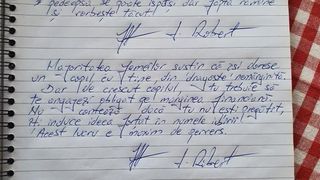 pedeapsa se poate ispăși dar fapta rămâne
și vorbește tăcut!
J. Robert
Majoritatea femeilor susțin că își doresc
un copil cu tine, din dragoste nemărginită.
Dar de crescut copilul, tu trebuie să
te angajezi obligat pe marginea financiară.
Nu contează dacă tu nu ești pregătit,
îți induce ideea forțat în numele iubirii
Acest lucru e maxim de pervers.
J. Robert